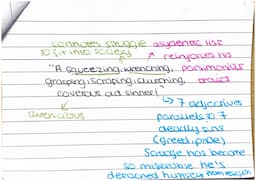 connotes struggle asyndetic list
to fit into society ↗ reinforces his
"A squeezing, wrenching, parsimonias
grasping, scraping, clutching, traits
coverous old sinner!"
↳ 7 adjectives
avaricious parallels to 7
deadly sins
(greed, pride)
Scrooge has become
so miserable he's
detached himself from religion